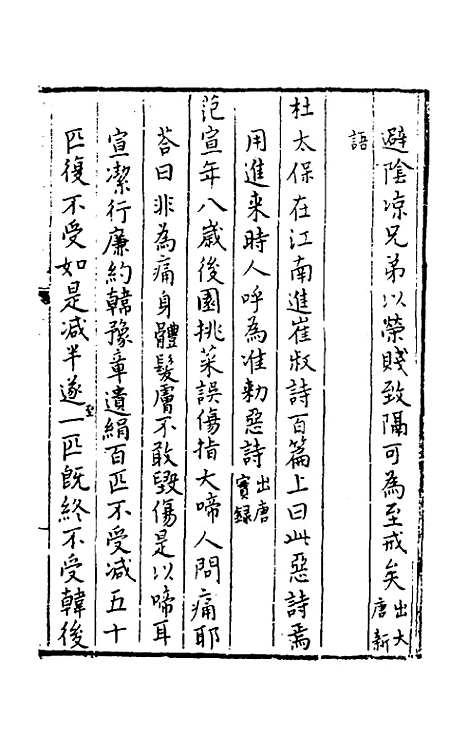 避陰凉兄弟以榮賤致隔可為至戒矣出大唐新
語
杜太保在江南進崔叔詩百篇上曰此惡詩焉
用進来時人呼為准勑惡詩出唐實録
范宣年八歲後園挑菜誤傷指大啼人問痛耶
荅曰非為痛身體髮膚不敢毀傷是以啼耳
宣潔行廉約韓豫章遺絹百匹不受减五十
匹復不受如是减半遂至一匹既終不受韓後